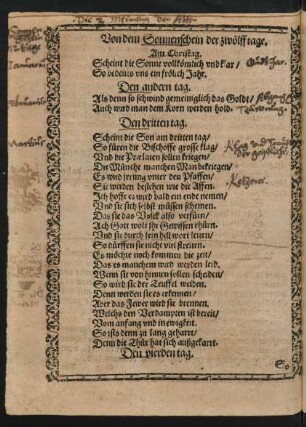 Von dem Sonnenschein der zwölff tage.
Am Christag.
Scheint die Sonne volkömlich vnd klar/
So bedeuts vns ein frölich Jahr.
Den andern tag.
Als denn so schwind gemeiniglich das Goldt/
Auch wird man dem Korn werden hold.
Den dritten tag.
Scheint die Son am dritten tag/
So füren die Bischoffe grosse klag/
Vnd die Prælaten sollen kriegen/
Die Münche manchen Man bekriegen/
Es wird jrrung vnter den Pfaffen/
Sie werden bestehen wie die Affen.
Ich hoffe es wird bald ein ende nemen/
Vnd sie sich selbst müssen schemen.
Das sie das Volck also verfüren/
Ach Gott wolt jhr Gewissen rhüren.
Vnd sie durch sein hell wort leiten/
So dürfften sie nicht viel streiten.
Es möchte noch kommen die zeit/
Das es manchem wird werden leid.
Wenn sie von hinnen sollen scheiden/
So wird sie der Teuffel weiden.
Denn werden sie es erkennen/
Aber das Fewer wird sie brennen.
Welchs den Verdampten ist bereit/
Vom anfang vnd in ewigkeit.
So ists denn zu lang geharrt/
Denn die Thür hat sich außgekarrt.
Den vierden tag.
So